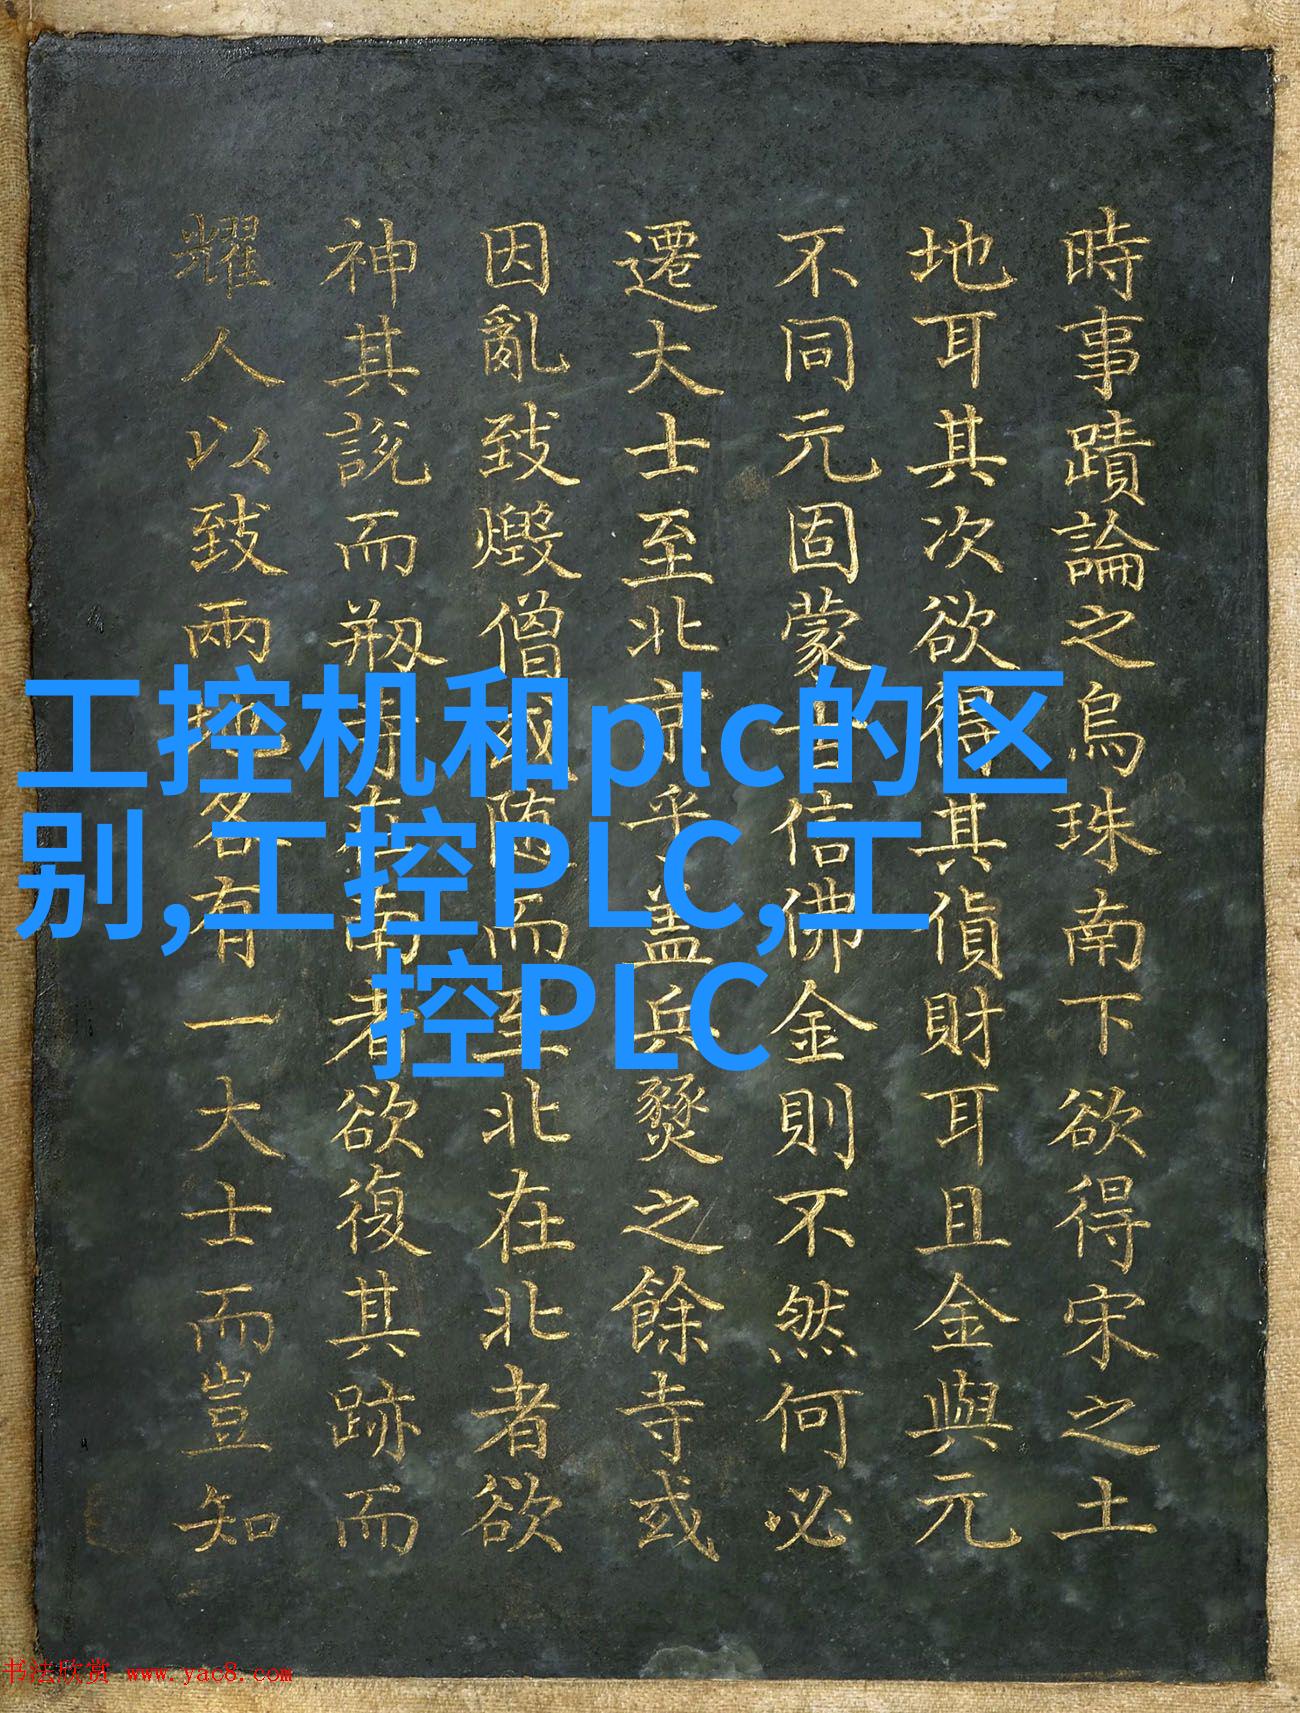 時事蹟論之烏珠南下欲得宋之土
地耳其次欲得其貨財耳且金與元
不同元固蒙古信佛金則不然何必
遷大士至北京乎蓋兵燹之餘寺或
因亂致燬僧或随而至北在北者欲
神其說而在南者欲復其跡而
耀人以致兩地各有一大士而豈知
工控机和plc的区
别,工控PLC,工
控PLC
书法欣赏 www.yac8.com